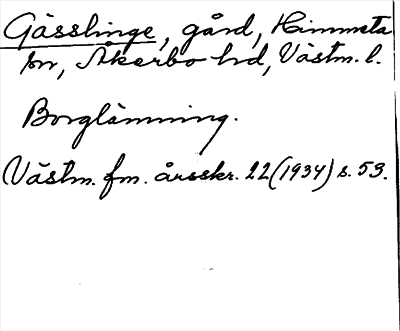 Gässlinge, gård, Himmeta
sn, Åkerbo hd, Västm. l.
Borglämning.
Västm. fm. årsskr. 22 (1934) s. 53.